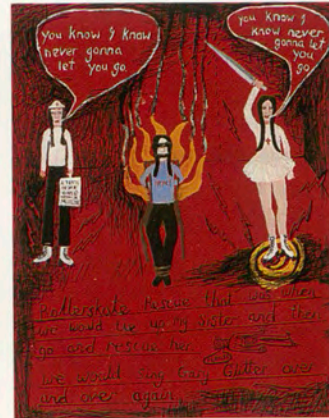 you know I know
never gonna
let you go.
you know I
know never
gonna let
you
go
Rollerskate Rescue that was when
we would tie up my sister and then
go and rescue her.
we would sing Gary Glitter over
and over again.